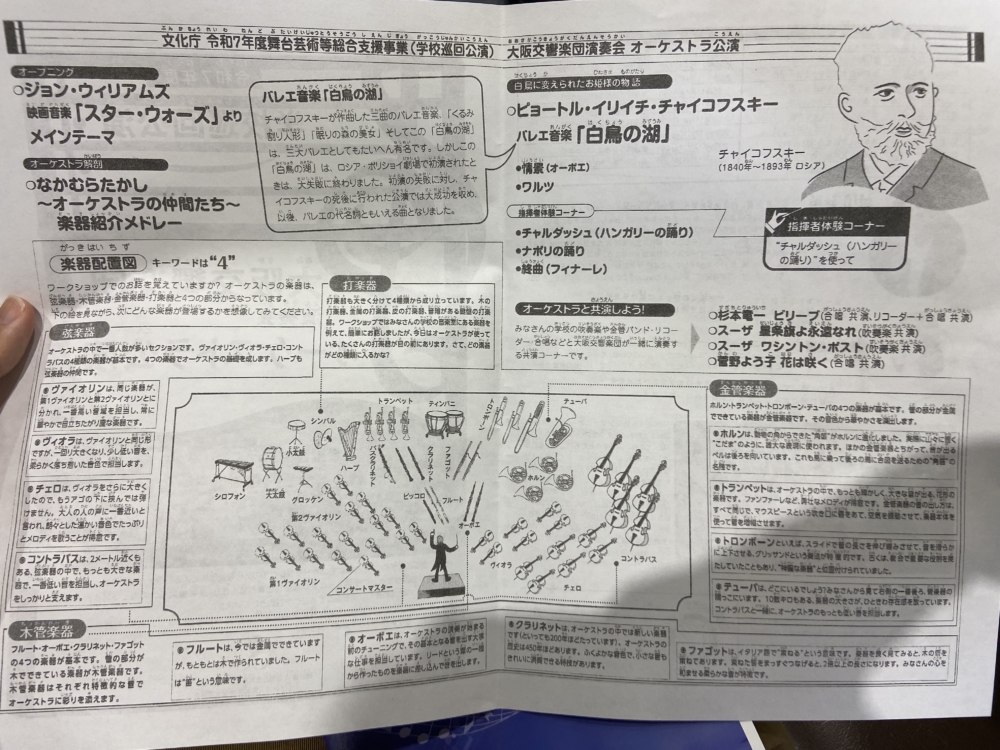 文化庁 令和7年度舞台芸術等総合支援事業(学校巡回公演) 大阪交響楽団演奏会 オーケストラ公演
オープニング
○ジョン・ウィリアムズ
映画音楽「スター・ウォーズ」より
メインテーマ
オーケストラ解剖
○なかむらたかし
～オーケストラの仲間たち～
楽器紹介メドレー
バレエ音楽「白鳥の湖」
チャイコフスキーが作曲した三曲のバレエ音楽、「くるみ
割り人形」「眠りの森の美女」そしてこの「白鳥の湖」
は、三大バレエとしてもたいへん有名です。しかしこの
「白鳥の湖」は、ロシア・ボリショイ劇場で初演されたと
きは、大失敗に終わりました。初演の失敗に対し、チャ
イコフスキーの死後に行われた公演では大成功を収め、
以後、バレエの代名詞ともいえる曲となりました。
白鳥に変えられたお姫様の物語
○ピョートル・イリイチ・チャイコフスキー
バレエ音楽「白鳥の湖」
•情景(オーボエ)
•ワルツ
指揮者体験コーナー
•チャルダッシュ(ハンガリーの踊り)
•ナポリの踊り
•終曲(フィナーレ)
チャイコフスキー
(1840年～1893年 ロシア)
指揮者体験コーナー
"チャルダッシュ(ハンガリー
の踊り)"を使って
オーケストラと共演しよう!
みなさんの学校の吹奏楽や金管バンド・リコー
ダー・合唱などと大阪交響楽団が一緒に演奏す
る共演コーナーです。
○杉本竜一 ビリーブ(合唱 共演、リコーダー+合唱 共演)
○スーザ 星条旗よ永遠なれ(吹奏楽 共演)
○スーザ ワシントン・ポスト(吹奏楽 共演)
○菅野よう子 花は咲く(合唱 共演)
がっきはいちず
楽器配置図 キーワードは"4"
ワークショップでのお話を覚えていますか? オーケストラの楽器は、
弦楽器・木管楽器・金管楽器・打楽器と4つの部分からなっています。
下の絵を見ながら、次にどんな楽器が登場するかを想像してみてください。
打楽器
打楽器も大きく分けて4種類から成り立っています。木の
打楽器、金属の打楽器、皮の打楽器、音階がある鍵盤の打楽
器。ワークショップではみなさんの学校の音楽室にある楽器を
例えて、簡単にお話しましたが、今日はオーケストラが使って
いる、たくさんの打楽器が目の前にあります。さて、どの楽器
がどの種類に入るかな?
弦楽器
オーケストラの中で一番人数が多いセクションです。ヴァイオリン・ヴィオラ・チェロ・コント
ラバスの4種類の楽器が基本です。4つの楽器でオーケストラの基礎を成します。ハープも
弦楽器の仲間です。
ヴァイオリンは、同じ楽器が、
第1ヴァイオリンと第2ヴァイオリンとに
分かれ、一番高い音域を担当し、常に
華やかで目立ちたがり屋な楽器です。
ヴィオラは、ヴァイオリンと同じ形
ですが、一回り大きくなり、少し低い音を、
柔らかく落ち着いた音色で担当します。
チェロは、ヴィオラをさらに大きく
したので、もうアゴの下に挟んでは弾
けません。大人の人の声に一番近いと
言われ、朗々とした温かい音色でたっぷり
とメロディを歌うことが得意です。
コントラバスは、2メートル近くも
ある、弦楽器の中で、もっとも大きな楽
器で、一番低い音を担当し、オーケストラ
をしっかりと支えます。
シンバル
小太鼓
ハープ
トランペット
ティンパニ
トロンボーン
テューバ
バスクラリネット
クラリネット
ファゴット
ホルン
シロフォン
大太鼓
グロッケン
ピッコロ
フルート
オーボエ
第2ヴァイオリン
第1ヴァイオリン
コンサートマスター
ヴィオラ
チェロ
コントラバス
金管楽器
ホルン・トランペット・トロンボーン・テューバの4つの楽器が基本です。管の部分が金属
でできている楽器が金管楽器です。その音色から華やかさを演出します。
ホルンは、動物の角からできた"角笛"がホルンに進化しました。
トランペットは、オーケストラの中で、もっとも輝かしく、大きな音が出る、花形の
楽器です。ファンファーレなど、勇壮なメロディが得意です。金管楽器の音の出し方は、
すべて同じで、マウスピースという吹き口に唇をあて、空気を振動させて、楽器本体を
使って音を増幅させます。
トロンボーンといえば、スライドで管の長さを伸び縮みさせて、音を滑らか
に上下させる、グリッサンドという奏法が特徴的です。古くは、教会で重要な役割を果
たしていたこともあり、"神聖な楽器"と位置付けられていました。
テューバは、どこにいるでしょう?みなさんから見て右側の一番後ろ、管楽器の
隅っこにいます。10数キロもある、楽器の大きさが、ひときわ存在感を放っています。
コントラバスと一緒に、オーケストラのもっとも低い音を担当します。
木管楽器
フルート・オーボエ・クラリネット・ファゴット
の4つの楽器が基本です。管の部分が
木でできている楽器が木管楽器です。
木管楽器はそれぞれ特徴的な音で
オーケストラに彩りを添えます。
フルートは、今では金属でできています
が、もともとは木で作られていました。フルート
は"笛"という意味です。
オーボエは、オーケストラの演奏が始まる
前のチューニングで、その基本となる音を出す大事
な仕事を担当しています。リードという葦の一種
から作ったものを楽器に差し込んで音を出します。
クラリネットは、オーケストラの中では新しい楽器
です(といっても200年ほどたっています)。オーケストラの
歴史は450年ほどあります。ふくよかな音色で、小さな音も
きれいに演奏できる特技があります。
ファゴットは、イタリア語で"束ねる"という意味です。楽器を良く見てみると、木の筒を
束ねてあります。束ねた管をまっすぐつなげると、2倍以上の長さになります。みなさんの心を
和ませる柔らかな音が特徴です。